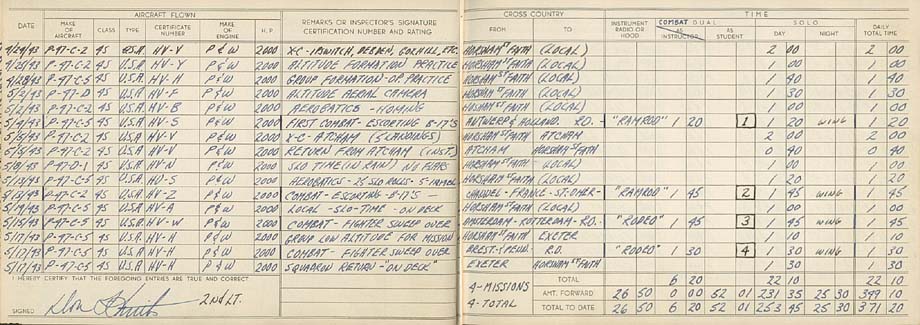 AIRCRAFT FLOWN
DATE MAKE OF AIRCRAFT CLASS TYPE CERTIFICATE NUMBER MAKE OF ENGINE H.P. REMARKS OR INSPECTOR'S SIGNATURE CERTIFICATION NUMBER AND RATING
4/24/43 P-47-C-2 4S U.S.A. HV-V P&W 2000 X-C-IPSWICH, DEBDEN, ETC.
4/25/43 P-47-C-2 4S U.S.A. HV-Y P&W 2000 ALTITUDE FORMATION PRACTICE
4/28/43 P-47-C-5 4S U.S.A. HV-H P&W 2000 GROUP FORMATION-OP. PRACTICE
5/2/43 P-47-D 4S U.S.A. HV-F P&W 2000 ALTITUDE AERIAL CAMERA
5/2/43 P-47-C-2 4S U.S.A. HV-B P&W 2000 AEROBATICS - HOMING
5/4/43 P-47-C-5 4S U.S.A. HV-S P&W 2000 FIRST COMBAT-ESCORTING B-17'S
5/5/43 P-47-C-2 4S U.S.A. HV-V P&W 2000 X-C-ATCHAM (5 LANDINGS)
5/5/43 P-47-C-2 4S U.S.A. HV-V P&W 2000 RETURN FROM ATCHAM (INST.)
5/8/43 P-47-D-1 4S U.S.A. HV-N P&W 2000 SLO TIME (IN RAIN) NO FLAPS
5/13/43 P-47-C-5 4S U.S.A. HV-S P&W 2000 AEROBATICS-25 SLO ROLLS-
5/13/43 P-47-C-2 4S U.S.A. HV-Z P&W 2000 COMBAT-ESCORTING B-17'S
5/14/43 P-47-C-5 4S U.S.A. HV-A P&W 2000 LOCAL-SLO-TIME - ON DECK
5/15/43 P-47-C-5 4S U.S.A. HV-W P&W 2000 COMBAT-FIGHTER SWEEP OVER
5/17/43 P-47-C-5 4S U.S.A. HV-H P&W 2000 GROUP LOW ALTITUDE FOR MISSION
5/17/43 P-47-C-5 4S U.S.A. HV-H P&W 2000 COMBAT-FIGHTER SWEEP OVER
5/17/43 P-47-C-5 4S U.S.A. HV-H P&W 2000 SQUADRON RETURN-"ON DECK"
I HEREBY CERTIFY THAT THE FOREGOING ENTRIES ARE TRUE AND CORRECT
SIGNED 2ND LT.
CROSS COUNTRY TIME
FROM TO INSTRUMENT RADIO OR HOOD COMBAT DUAL AS INSTRUCTOR AS STUDENT SOLO DAY NIGHT DAILY TOTAL TIME
HORSHAM ST FAITH (LOCAL) 2 00 2 00
HORSHAM ST FAITH (LOCAL) 1 00 1 00
HORSHAM ST FAITH (LOCAL) 1 40 1 40
HORSHAM ST FAITH (LOCAL) 1 30 1 30
HORSHAM ST FAITH (LOCAL) 1 00 1 00
ANTWERP & HOLLAND. R.O.- "RAMROD" 1 20 1 1 20 WING 1 20
HORSHAM ST FAITH ATCHAM 2 00 2 00
ATCHAM HORSHAM ST FAITH 0 40 0 40
HORSHAM ST FAITH (LOCAL) 1 00 1 00
HORSHAM ST FAITH (LOCAL) 1 20 1 20
CHANNEL-FRANCE-ST. OMER- "RAMROD" 1 45 2 1 45 WING 1 45
HORSHAM ST FAITH (LOCAL) 1 00 1 00
AMSTERDAM-ROTTERDAM-R.O. "RODEO" 1 45 3 1 45 WING 1 45
HORSHAM ST FAITH EXETER 1 10 1 10
BREST- R.O. "RODEO" 1 30 4 1 30 WING 1 30
EXETER HORSHAM ST FAITH 1 30 1 30
4-MISSIONS TOTAL 6 20 22 10 22 10
AMT. FORWARD 26 50 0 00 52 01 231 35 25 30 349 10
4-TOTAL TOTAL TO DATE 26 50 6 20 52 01 253 45 25 30 371 20